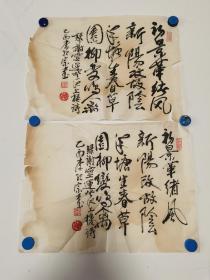 初景革緒風
新陽改故陰
池塘生春草
園柳變鳴禽
謝靈運登池上樓詩
初景革緒風
新陽改故陰
池塘生春草
園柳變鳴禽
謝靈運登池上樓詩